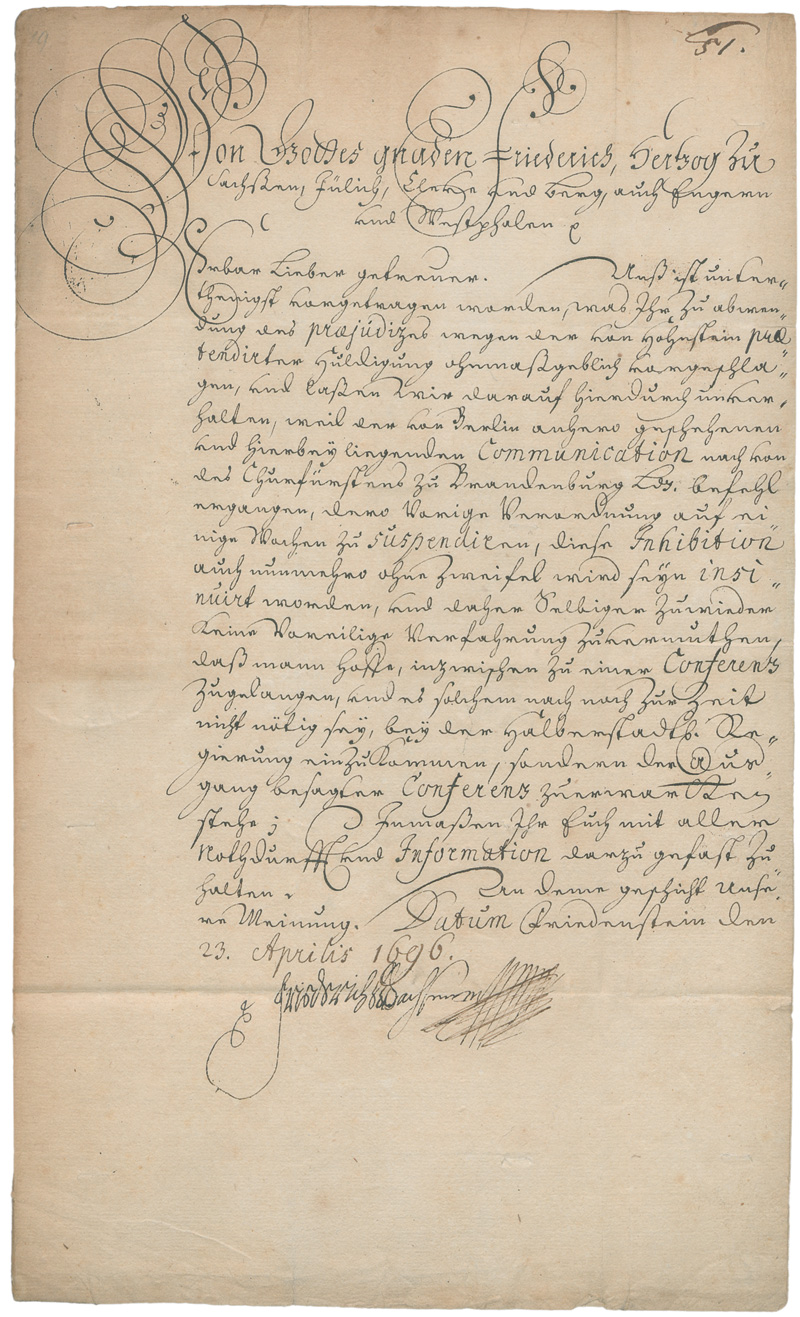 51.
Von Gottes gnaden Friederich, Hertzog zu
Sachßen, Jülich, Cleve und Berg, auch Engern
und Westphalen
Erbar Lieber getreuer. Unß ist unter-
thenigst vorgetragen worden, was Ihr zu abwen-
dung des præjudizes wegen der von Hohnstein præ
tendirter Huldigung ohnmaßgeblich vorgeschla-
gen, und laßen wir darauf hierdurch unver-
halten, weil der von Berlin anhero geschehenen
und hierbey liegenden Communication nach von
des Churfürstens zu Brandenburg Ldn. befehl
ergangen, dero vorige Verordnung auf ei
nige Wochen zu suspendiren, diese Inhibition
auch nunmehro ohne Zweifel wird seyn insi-
nuirt worden, und daher Selbiger zuwieder
keine Voreilige Verfahrung zuvermuthen,
daß mann hoffe, inzwischen zu einer Conferenz
zugelangen, und es solchem nach noch zur Zeit
nicht nötig sey, bey der Halberstadtl. Re-
gierung einzukommen, sondern der Aus-
gang besagter Conferenz zuerwarten
stehe; Inmaßen Ihr Euch mit aller
Nothdurfft und Information darzu gefast zu
halten. An deme geschicht Unse-
re Meinung. Datum Friedenstein den
23. Aprilis 1696.
Friederich HzSachsen